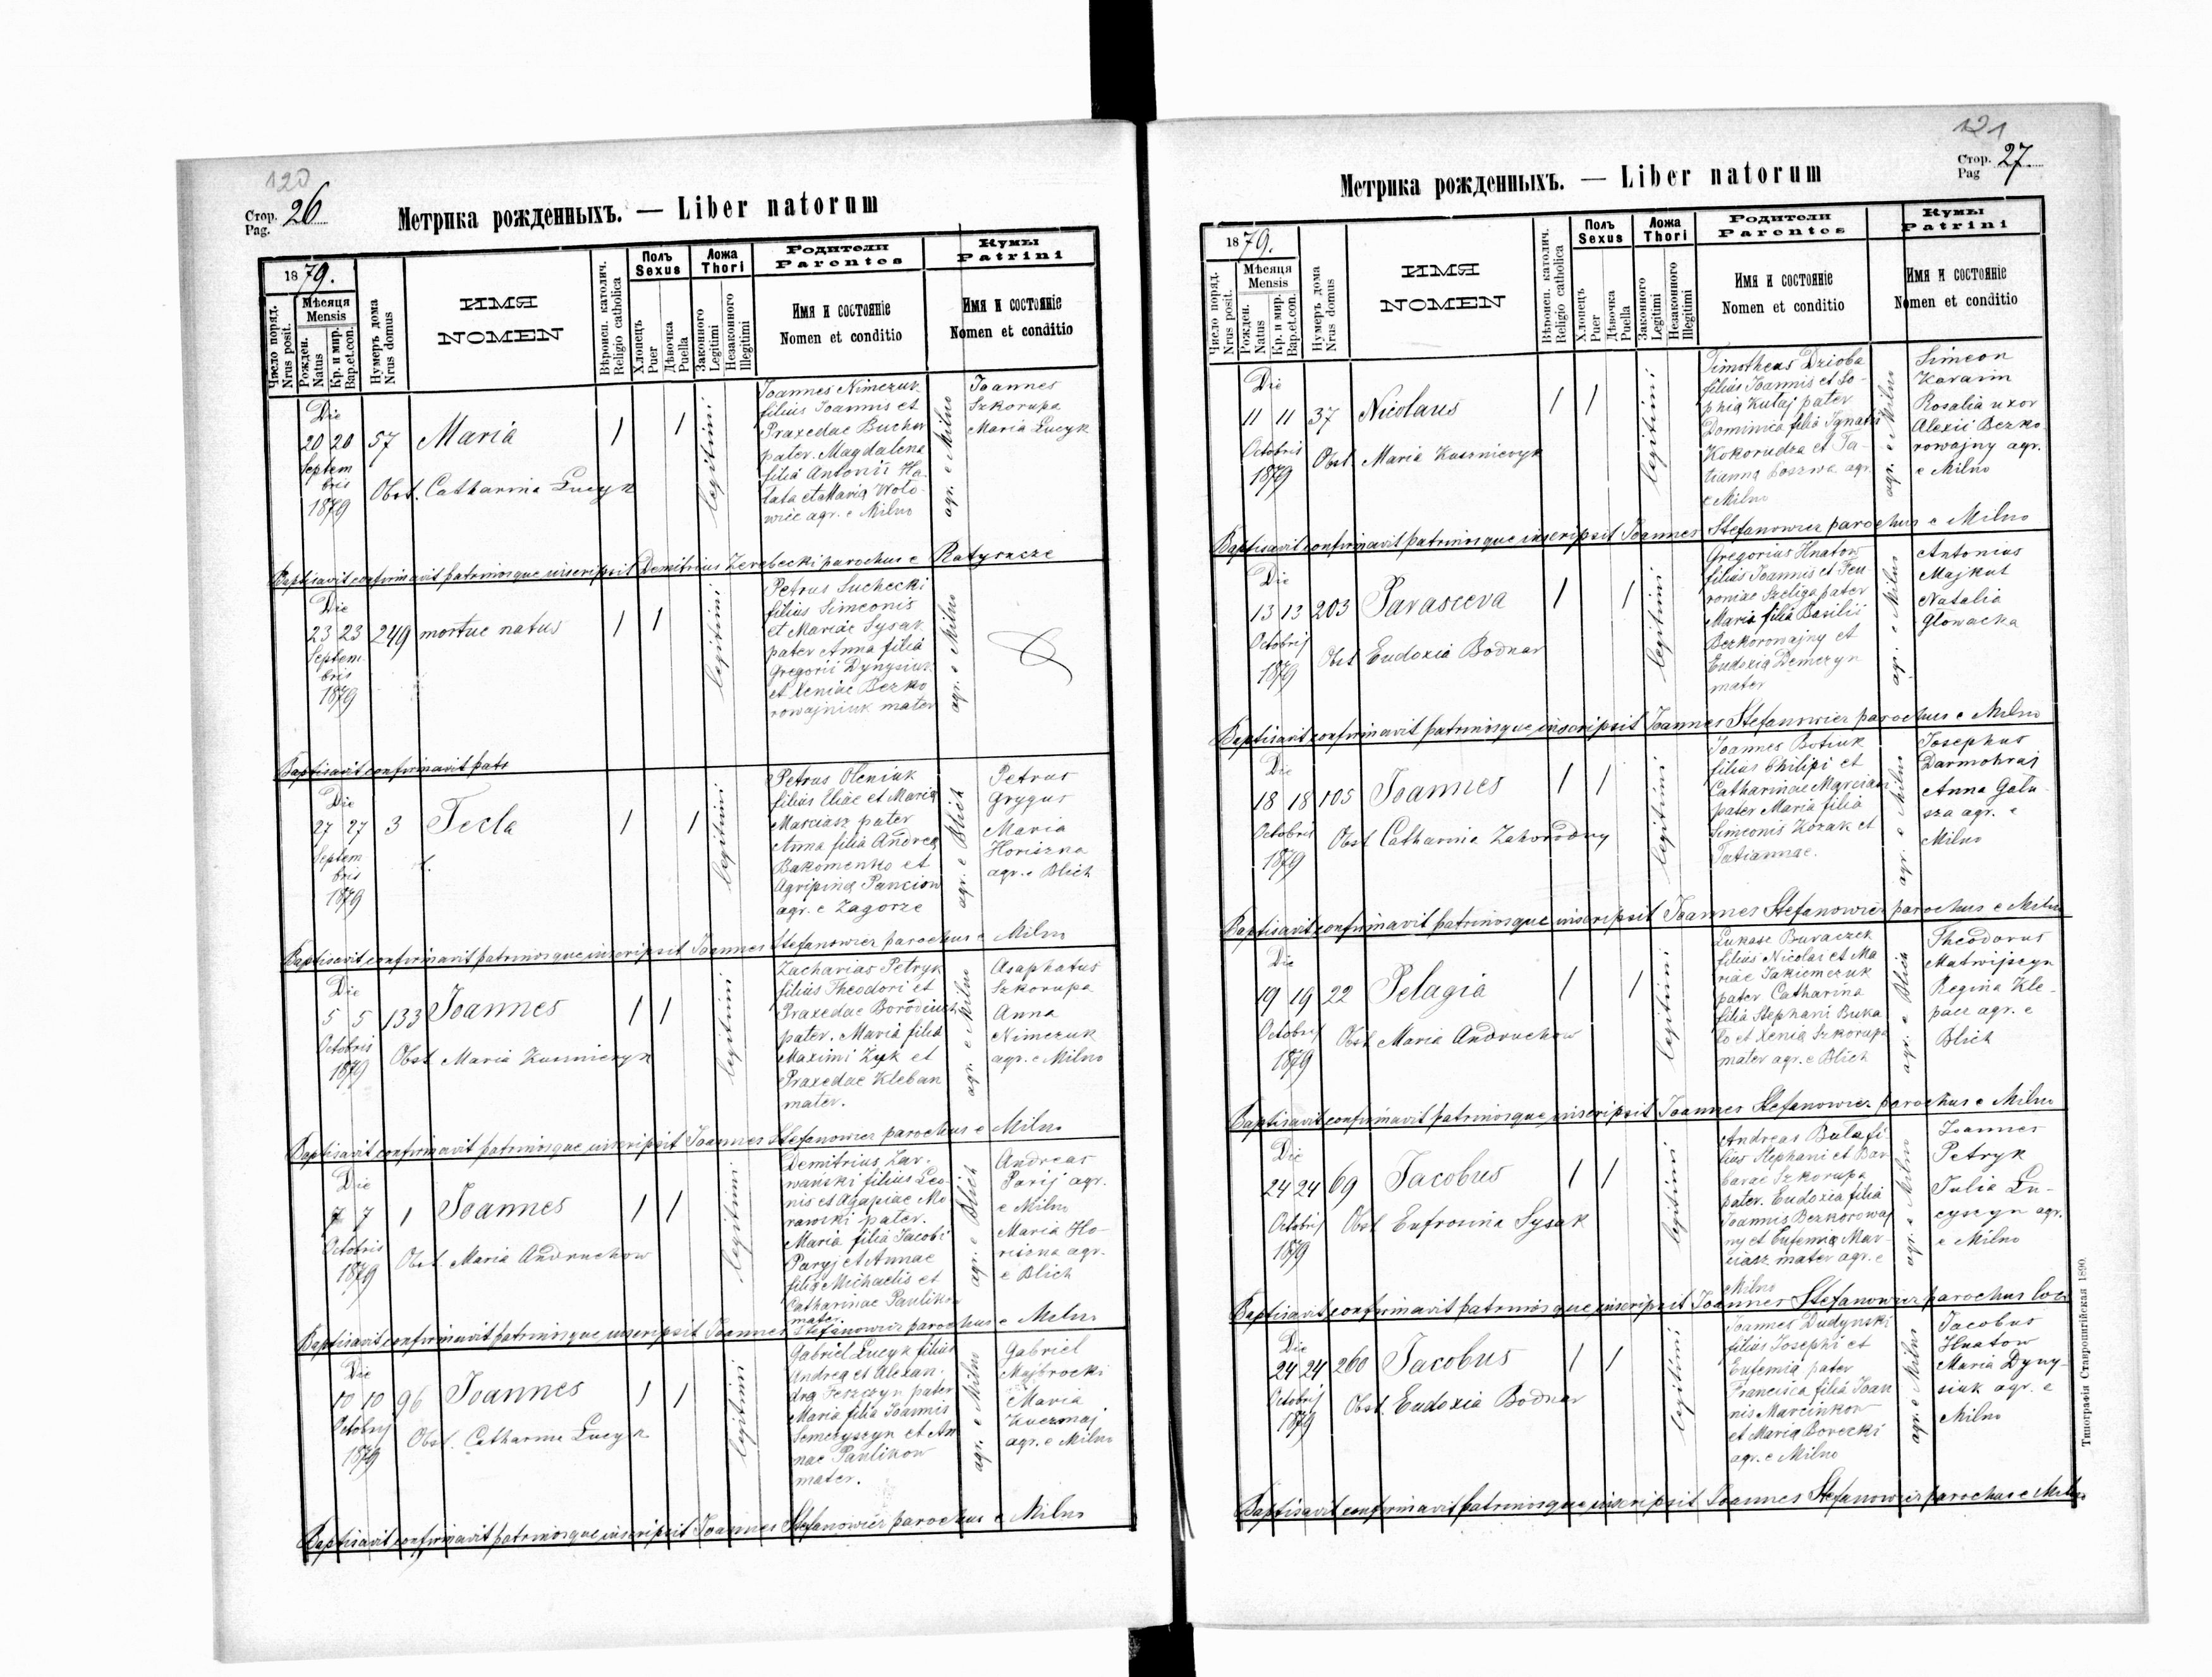 120
Стор. 26
Pag.
Метрика рожденныхъ. — Liber natorum
1879.
Число поряд.
Nrus posit.
Мѣсяця
Mensis
Рожден.
Natus
Кр. и мир.
Bap. et. con.
Нумеръ дома
Nrus domus
ИМЯ
NOMEN
Вѣроисп. католич.
Religio catholica
Полъ
Sexus
Хлопецъ
Puer
Дѣвочка
Puella
Ложа
Thori
Законного
Legitimi
Незаконного
Illegitimi
Родители
Parentes
Имя и состояніе
Nomen et conditio
Кумы
Patrini
Имя и состояніе
Nomen et conditio
Die
20 20 57 Maria 1 1
Septem
bris
1879
Obst. Catharina Lucyk
legitimi
Joannes Nimczuk
filius Joannis et
Praxedae Buchar
pater. Magdalena
filia Antonii Ha-
łata et Maria Woło-
wiec agr. e Milno
agr. e Milno
Joannes
Szkorupa
Maria Lucyk
Baptisavit confirmavit patrinosque inscripsit Demitrius Zerebecki parochus e Ratyszcze
Die
23 23 249 mortue natus 1 1
Septem
bris
1879
legitimi
Petrus Suchecki
filius Simeonis
et Mariae Sysak
pater Anna filia
Gregorii Dynysiuk
et Xeniae Bezko
rowajniuk mater
agr. e Milno
Baptisavit confirmavit patr
Die
27 27 3 Tecla 1 1
Septem
bris
1879
t.
legitimi
Petrus Oleniuk
filius Eliae et Maria
Marciasz pater
Anna filia Andrea
Bakomenko et
Agripina Pancion
agr. e Zagorze
agr. e Blich
Petrus
Grygus
Maria
Horiszna
agr. e Blich
Baptisavit confirmavit patrinosque inscripsit Joannes Stefanowicz parochus e Milno
Die
5 5 133 Joannes 1 1
Octobris
1879
Obst Maria Kusznieryk
legitimi
Zacharias Petryk
filius Theodori et
Praxedae Borodiuch
pater. Maria filia
Maximi Zyk et
Praxedae Kleban
mater.
agr. e Milno
Asaphatus
Szkorupa
Anna
Nimczuk
agr. e Milno
Baptisavit confirmavit patrinosque inscripsit Joannes Stefanowicz parochus e Milno
Die
7 7 1 Joannes 1 1
Octobris
1879
Obst Maria Andruchow
legitimi
Demitrius Zar-
wański filius Leo-
nis et Agapiae Mo
rawski pater.
Maria filia Jacobi
Paryj et Annae
filia Michaelis et
Catharinae Paulikow
mater.
agr. e Blich
Andreas
Parij agr.
e Milno
Maria Ho-
riszna agr.
e Blich
Baptisavit confirmavit patrinosque inscripsit Joannes Stefanowicz parochus e Milno
Die
10 10 96 Joannes 1 1
Octobris
1879
Obst. Catharina Lucyk
legitimi
Gabriel Lucyk filius
Andrea et Alexan-
dra Feszczyn pater
Maria filia Joannis
Semczyszyn et An
nae Paulikow
mater.
agr. e Milno
Gabriel
Majbrocki
Maria
Kuczmaj
agr. e Milno
Baptisavit confirmavit patrinosque inscripsit Joannes Stefanowicz parochus e Milno
121
Стор. 27
Pag
Метрика рожденныхъ. — Liber natorum
1879.
Число поряд.
Nrus posit.
Мѣсяця
Mensis
Рожден.
Natus
Кр. и мир.
Bap. et. con.
Нумеръ дома
Nrus domus
ИМЯ
NOMEN
Вѣроисп. католич.
Religio catholica
Полъ
Sexus
Хлопецъ
Puer
Дѣвочка
Puella
Ложа
Thori
Законного
Legitimi
Незаконного
Illegitimi
Родители
Parentes
Имя и состояніе
Nomen et conditio
Кумы
Patrini
Имя и состояніе
Nomen et conditio
Die
11 11 37 Nicolaus 1 1
Octobris
1879
Obst Maria Kusznieryk
legitimi
Timotheus Dzioba
filius Joannis et So-
phia Kutaj pater
Dominica filia Ignatii
Kokorudza et Ta-
tianna Łoszwa agr.
e Milno
agr. e Milno
Simeon
Karaim
Rosalia uxor
Alexii Bezko
rowajny agr.
e Milno
Baptisavit confirmavit patrinosque inscripsit Joannes Stefanowicz parochus e Milno
Die
13 13 203 Parasceva 1 1
Octobris
1879
Obst Eudoxia Bodnar
legitimi
Gregorius Hnatow
filius Joannis et Feu
roniae Szeliga pater
Maria filia Basilii
Bezkorowajny et
Eudoxia Demczyn
mater
agr. e Milno
Antonius
Majkut
Natalia
Głowacka
Baptisavit confirmavit patrinosque inscripsit Joannes Stefanowicz parochus e Milno
Die
18 18 105 Joannes 1 1
Octobris
1879
Obst Catharina Zahorodny
legitimi
Joannes Botiuk
filius Philipi et
Catharinae Marciasz
pater Maria filia
Simeonis Kozak et
Tatiannae.
agr. e Milno
Josephus
Darmohraj
Anna Gału-
sza agr. e
Milno
Baptisavit confirmavit patrinosque inscripsit Joannes Stefanowicz parochus e Milno
Die
19 19 22 Pelagia 1 1
Octobris
1879
Obst Maria Andruchow
legitimi
Lukasz Buraczek
filius Nicolai et Ma
riae Jakiemczuk
pater Catharina
filia Stephani Buka
ło et Xenia Szkorupa
mater agr. e Blich
agr. e Blich
Theodorus
Matwijszyn
Regina Kle-
pacz agr. e
Blich
Baptisavit confirmavit patrinosque inscripsit Joannes Stefanowicz parochus e Milno
Die
24 24 69 Jacobus 1 1
Octobris
1879
Obst Eufrosina Sysak
legitimi
Andreas Bula fi
lius Stephani et Bar
barae Szkorupa
pater. Eudoxia filia
Joannis Bezkorowaj
nyj et Eufemia Mar-
ciasz mater agr. e
Milno
agr. e Milno
Joannes
Petryk
Julia Lu-
cyszyn agr.
e Milno
Baptisavit confirmavit patrinosque inscripsit Joannes Stefanowicz parochus loci
Die
24 24 260 Jacobus 1 1
Octobris
1879
Obst. Eudoxia Bodnar
legitimi
Joannes Dudynski
filius Josephi et
Eufemia pater
Francisca filia Joan
nis Marcinkow
et Maria Borecki
agr. e Milno
agr. e Milno
Jacobus
Hnatow
Maria Dyny-
siuk agr. e
Milno
Baptisavit confirmavit patrinosque inscripsit Joannes Stefanowicz parochus e Milno
Типографія Ставропигійская 1890.